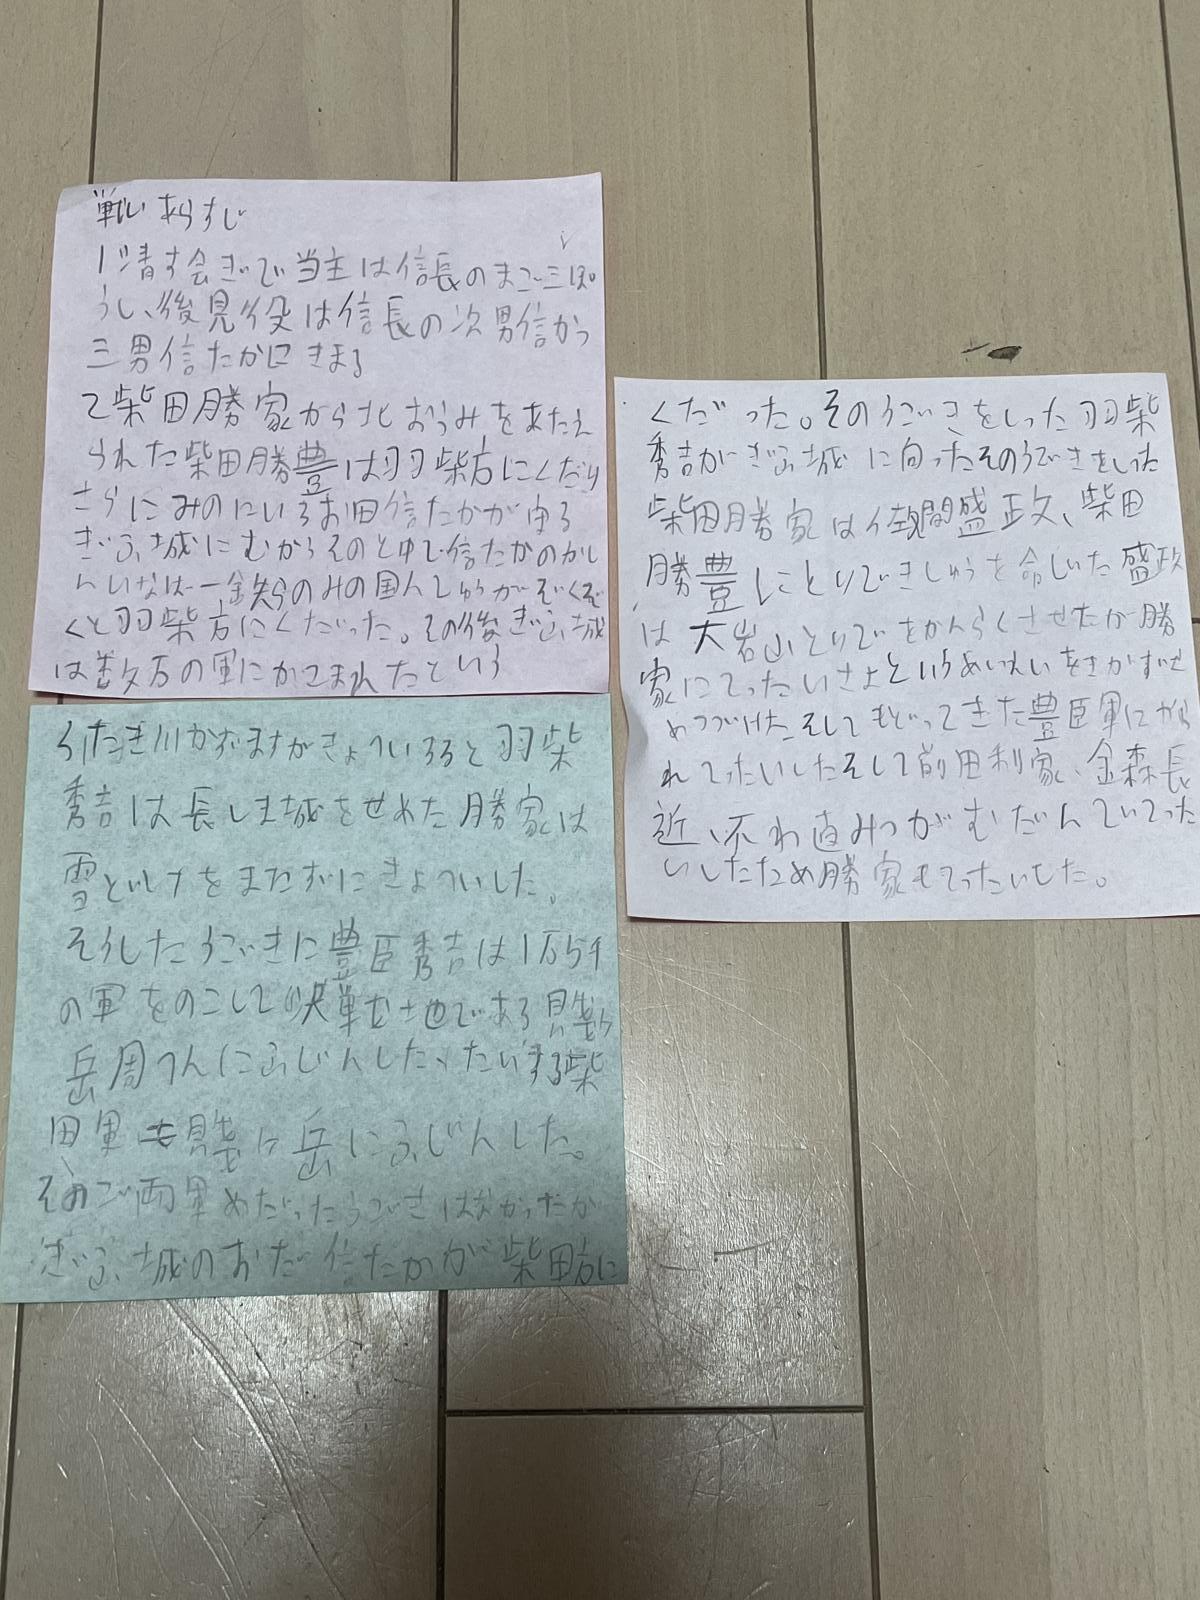 戦い あらすじ
1 清す会ぎで当主は信長のまご三ぽ
うし、後見役は信長の次男信かつ
三男信たかにきまる
2 柴田勝家から北おうみをあたえ
られた柴田勝豊は羽柴方にくだり
さらにみのにいるお田信たかがゆる
ぎふ城にむかうそのと中で信たかのかし
んいなば一鉄らのみの国人しゅうがぞくぞ
くと羽柴方にくだった。その後ぎふ城
は数万の軍にかこまれたという
3 たき川かずますがきょへいすると羽柴
秀吉は長しま城をせめた勝家は
雪どけをまたずにきょへいした。
そうしたうごきに豊臣秀吉は1万5千
の軍をのこして決戦の土地である賤ヶ
岳周へんにふじんした、たいする柴
田軍も賤ヶ岳にふじんした。
そのご両軍めだったうごきはなかったが
ぎふ城のおだ信たかが柴田方に
くだった。そのうごきをしった羽柴
秀吉がぎふ城に向ったそのうごきをしった
柴田勝家は佐久間盛政、柴田
勝豊にとりできしゅうを命じた盛政
は大岩山とりでをかんらくさせたが勝
家にてったいさよというめいれいをきかずせ
めつづけたそしてもどってきた豊臣軍にかこ
れてったいしたそして前田利家、金森長
近、不わ直みつがむだんでてった
いしたため勝家もてったいした。